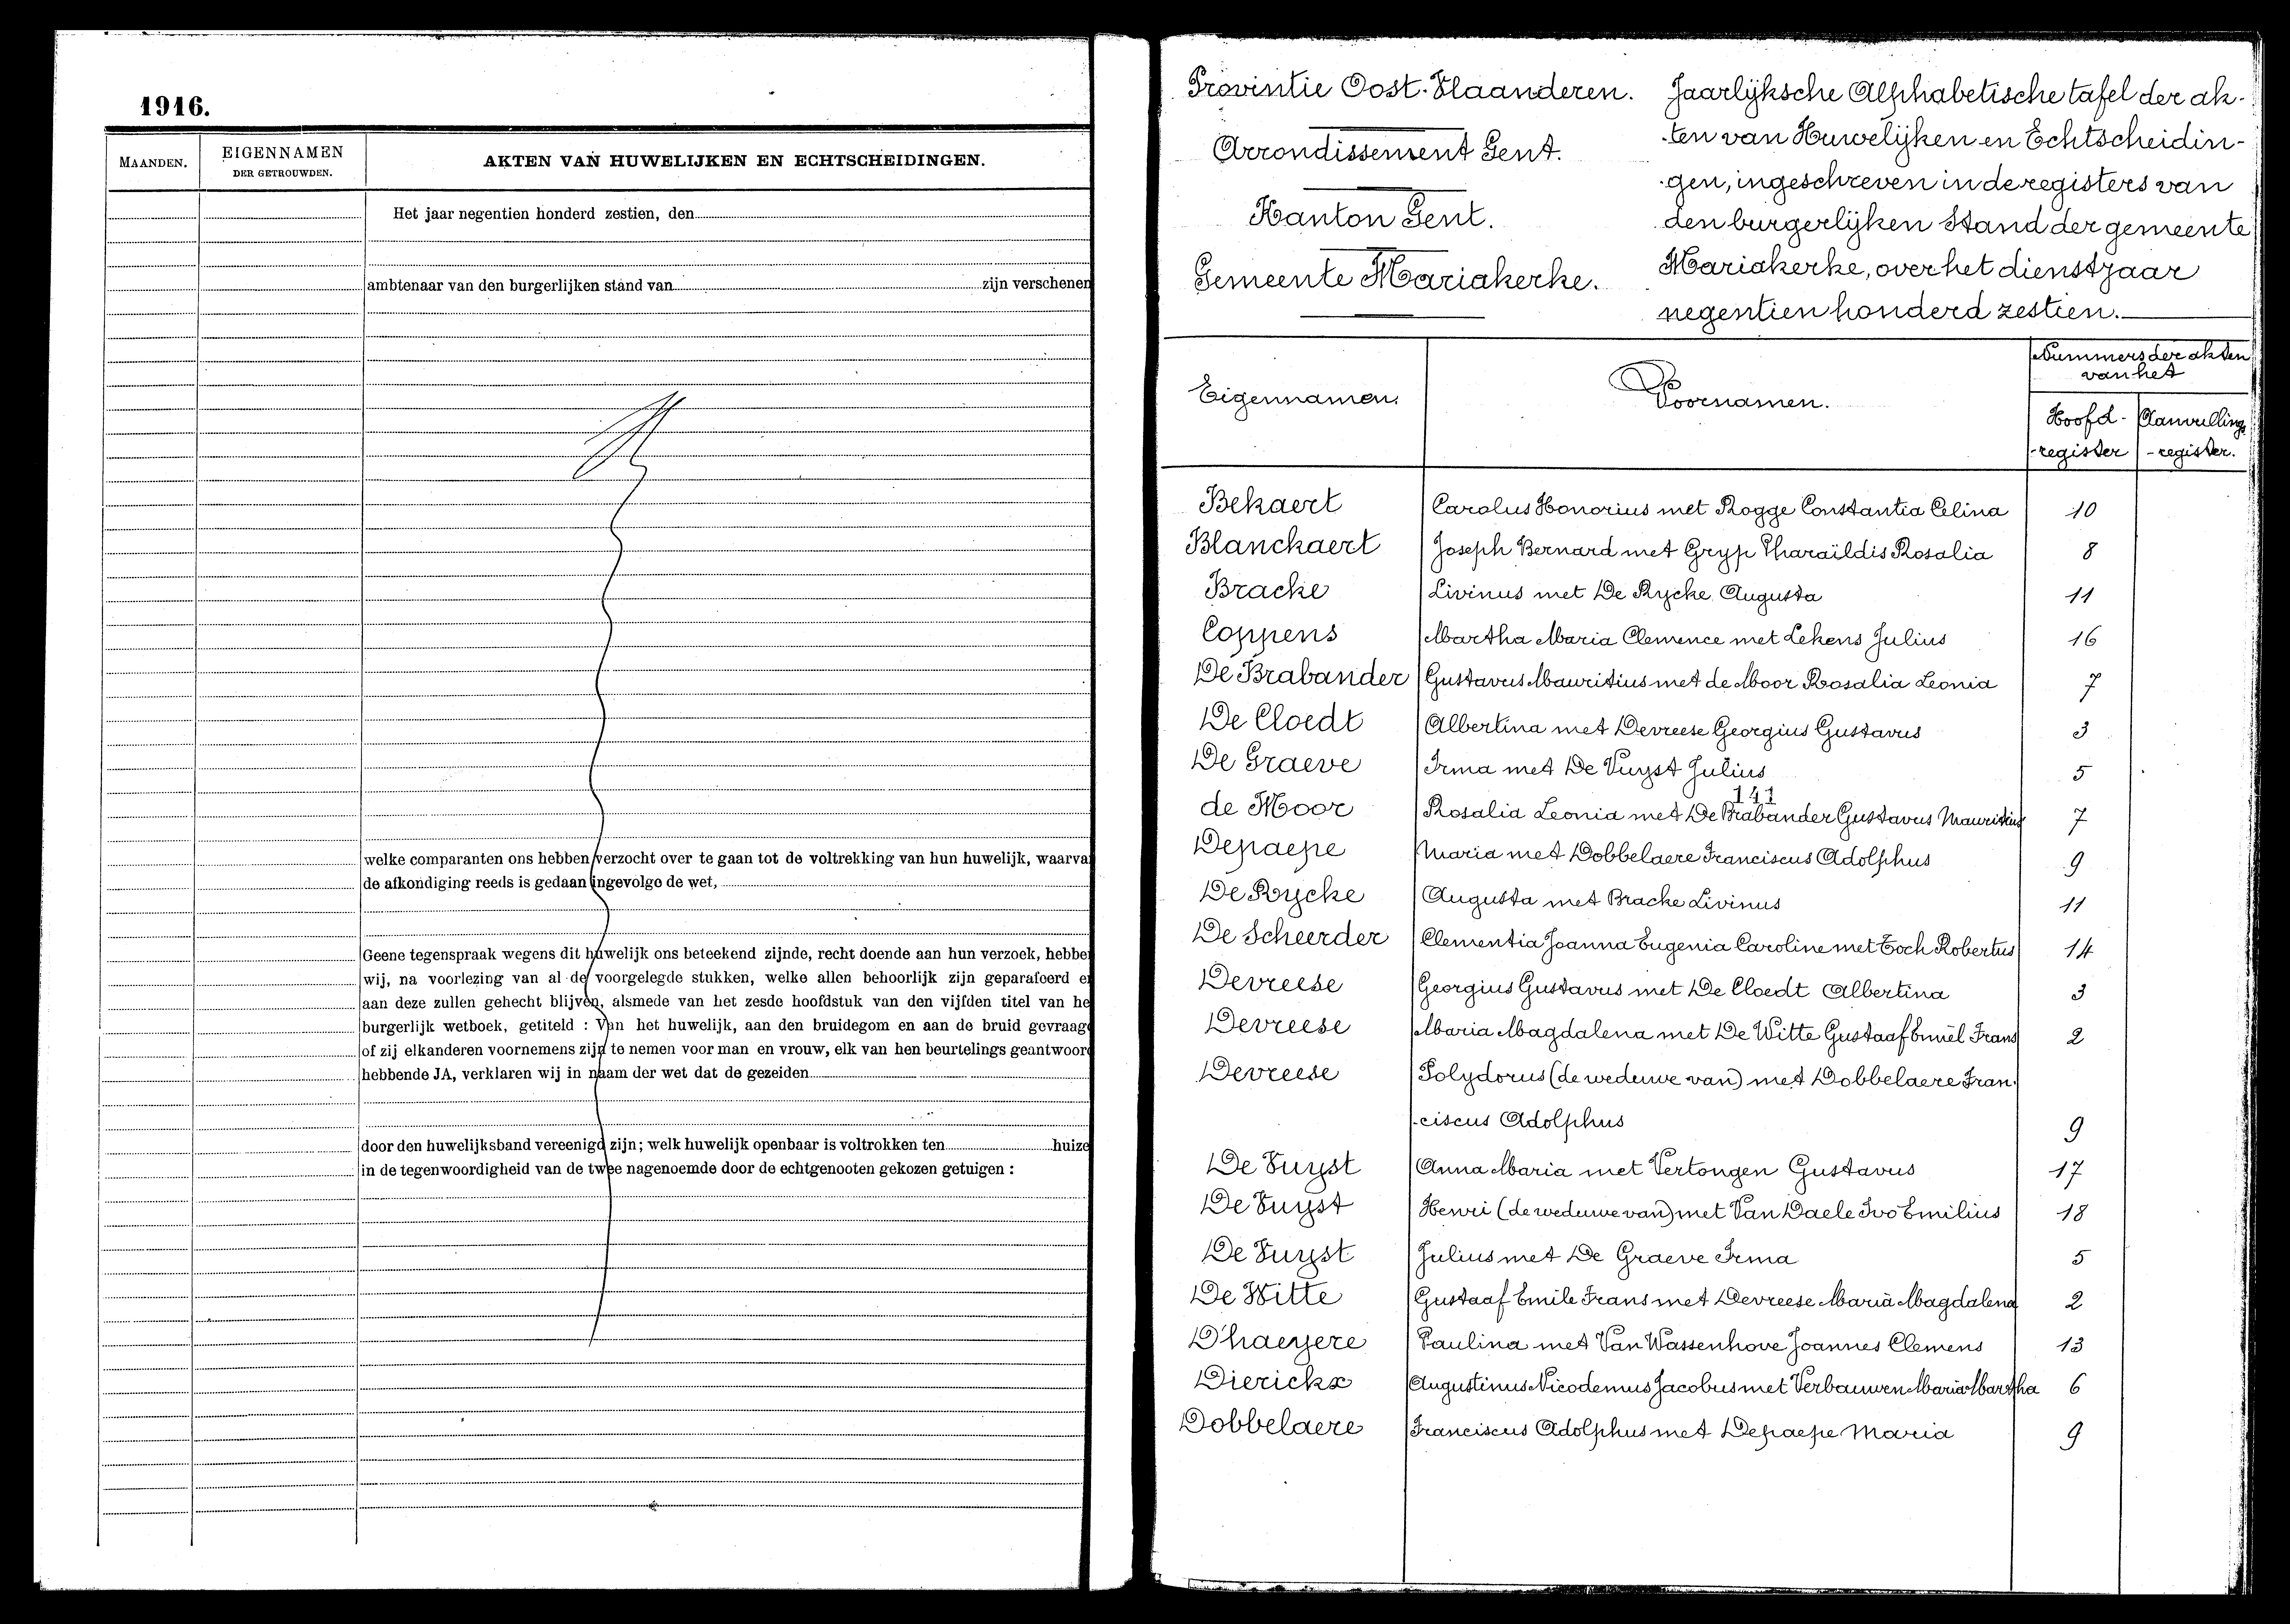 1916.
MAANDEN.
EIGENNAMEN
DER GETROUWDEN.
AKTEN VAN HUWELIJKEN EN ECHTSCHEIDINGEN.
Het jaar negentien honderd zestien, den
ambtenaar van den burgerlijken stand van zijn verschenen
welke comparanten ons hebben verzocht over te gaan tot de voltrekking van hun huwelijk, waarva
de afkondiging reeds is gedaan ingevolge de wet,
Geene tegenspraak wegens dit huwelijk ons beteekend zijnde, recht doende aan hun verzoek, hebbe
wij, na voorlezing van al de voorgelegde stukken, welke allen behoorlijk zijn geparafeerd e
aan deze zullen gehecht blijven, alsmede van het zesde hoofdstuk van den vijfden titel van he
burgerlijk wetboek, getiteld : Van het huwelijk, aan den bruidegom en aan de bruid gevraag
of zij elkanderen voornemens zijn te nemen voor man en vrouw, elk van hen beurtelings geantwoor
hebbende JA, verklaren wij in naam der wet dat de gezeiden
door den huwelijksband vereenigd zijn; welk huwelijk openbaar is voltrokken ten huize
in de tegenwoordigheid van de twee nagenoemde door de echtgenooten gekozen getuigen :
Provintie Oost-Vlaanderen.
Arrondissement Gent.
Kanton Gent.
Gemeente Mariakerke.
Jaarlijksche Alphabetische tafel der ak-
-ten van Huwelijken en Echtscheidin-
-gen, ingeschreven in de registers van
den burgerlijken Stand der gemeente
Mariakerke, over het dienstjaar
negentien honderd zestien.
Eigennamen.
Voornamen.
Nummers der akten
van het
Hoofd-
-register
Aanvullings
-register.
Bekaert Carolus Honorius met Rogge Constantia Celina 10
Blanckaert Joseph Bernard met Gryp Pharaïldis Rosalia 8
Bracke Livinus met De Rycke Augusta 11
Coppens Martha Maria Clemence met Lekens Julius 16
De Brabander Gustavus Mauritius met de Moor Rosalia Leonia 7
De Cloedt Albertina met Devreese Georgius Gustavus 3
De Graeve Irma met De Vuyst Julius 5
141
de Moor Rosalia Leonia met De Brabander Gustavus Mauritius 7
Depaepe Maria met Dobbelaere Franciscus Adolphus 9
De Rycke Augusta met Bracke Livinus 11
De Scheerder Clementia Joanna Eugenia Caroline met Toch Robertus 14
Devreese Georgius Gustavus met De Cloedt Albertina 3
Devreese Maria Magdalena met De Witte Gustaaf Emiel Frans 2
Devreese Polydorus (de weduwe van) met Dobbelaere Fran-
-ciscus Adolphus 9
De Vuyst Anna Maria met Vertongen Gustavus 17
De Vuyst Henri (de weduwe van) met Van Daele Ivo Emilius 18
De Vuyst Julius met De Graeve Irma 5
De Witte Gustaaf Emile Frans met Devreese Maria Magdalena 2
D'haeyere Paulina met Van Wassenhove Joannes Clemens 13
Dierickx Augustinus Nicodemus Jacobus met Verbauwen Maria Martha 6
Dobbelaere Franciscus Adolphus met Depaepe Maria 9